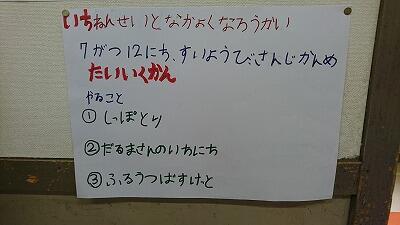 いちねんせいとなかよくなろうかい
7がつ12にち、すいようびさんじかんめ
たいいくかん
やること
①しっぽとり
②だるまさんのいちにち
③ふるうつばすけっと